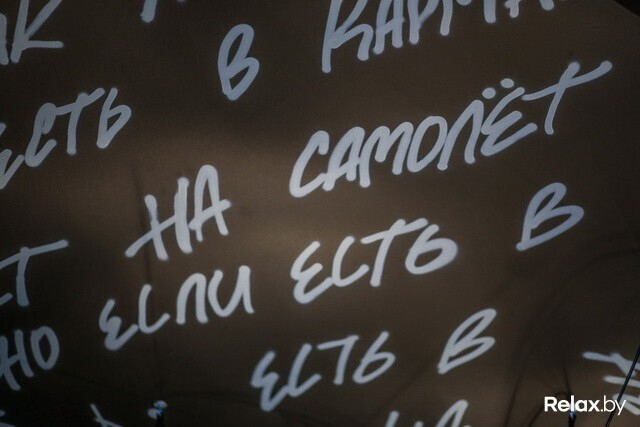 в карма
есть
на самолёт
если есть в
есть в
Relax.by